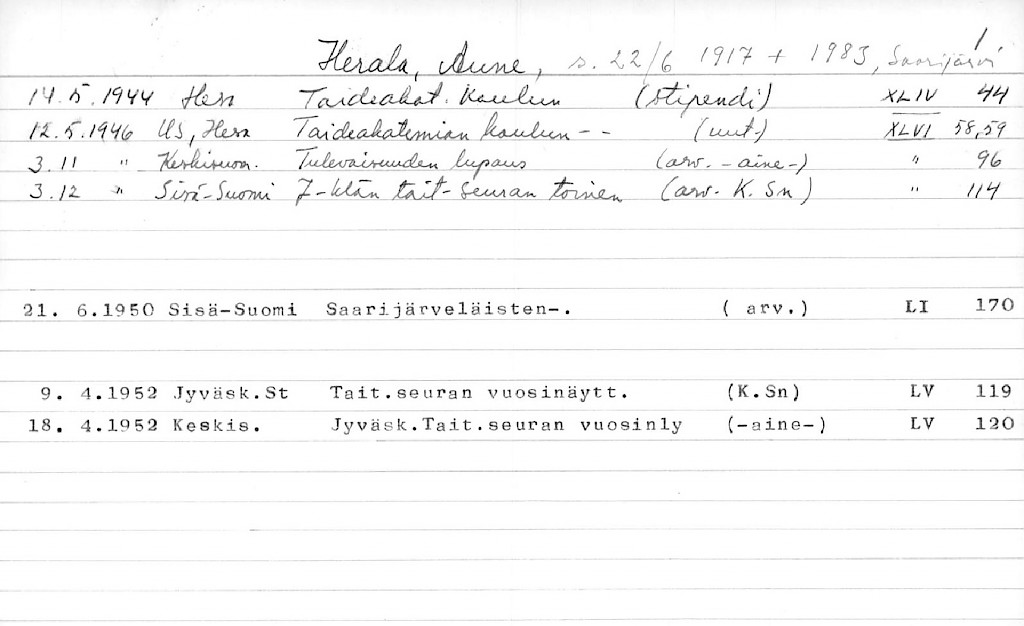 1
Herala, Aune, s. 22/6 1917 + 1983, Saarijärvi
14.5.1944 Hesa Taideakat. Koulun (stipendi) XLIV 44
12.5.1946 US, Hesa Taideakatemian koulun - - (uut-) XLVI 58,59
3.11 " Keskisuom. Tulevaisuuden lupaus (arv. - aine-) " 96
3.12 " Sisä-Suomi J-klän tait-seuran toinen (arv- K. Sn) " 114
21. 6.1950 Sisä-Suomi Saarijärveläisten-. ( arv.) LI 170
9. 4.1952 Jyväsk.St Tait.seuran vuosinäytt. (K.Sn) LV 119
18. 4.1952 Keskis. Jyväsk.Tait.seuran vuosinly (-aine-) LV 120